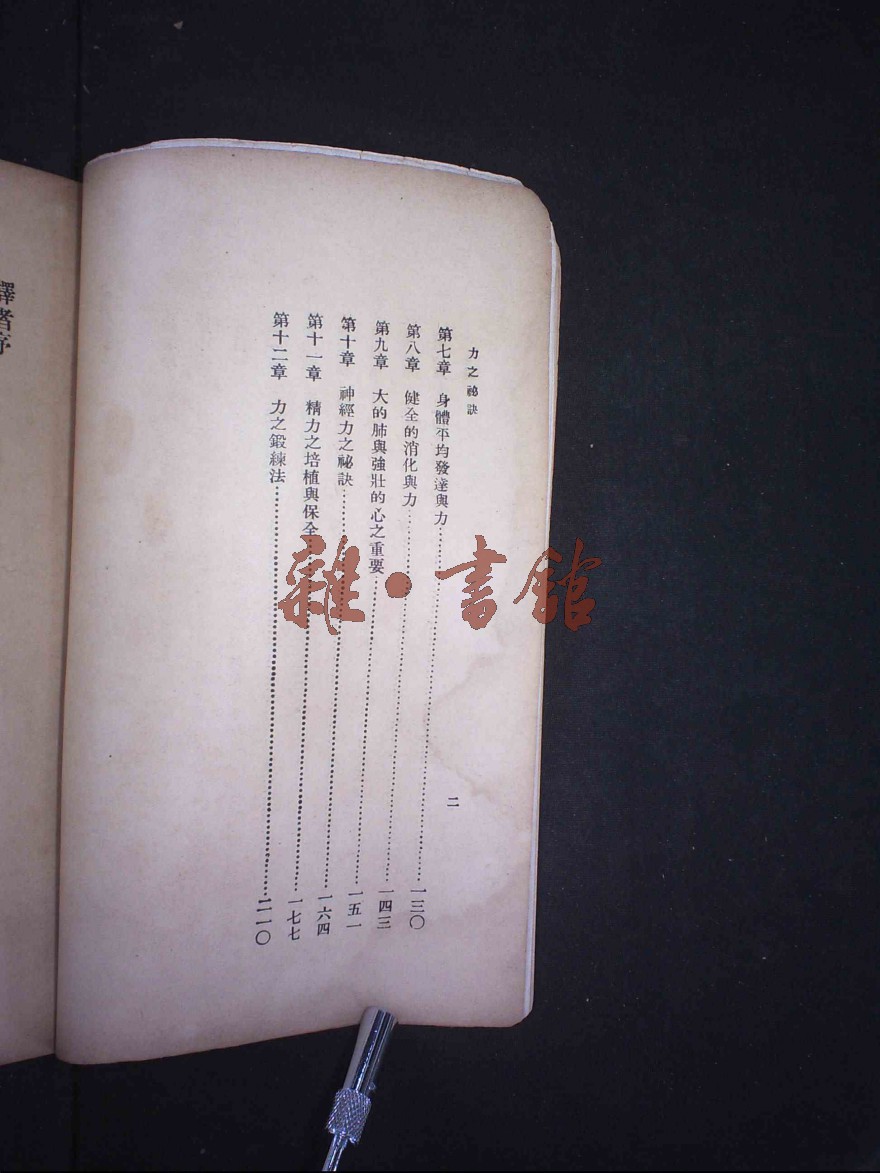 力之祕訣
第七章 身體平均發達與力……一三〇
第八章 健全的消化與力……一四三
第九章 大的肺與強壯的心之重要……一五一
第十章 神經力之祕訣……一六四
第十一章 精力之培植與保全……一七七
第十二章 力之鍛練法……二一〇
二
譯者序
雜·書館